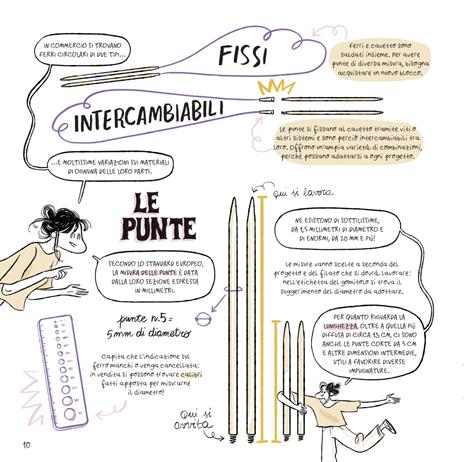 IN COMMERCIO SI TROVANO
FERRI CIRCOLARI DI DUE TIPI...
FISSI
Ferri e cavetto sono
saldati insieme. Per avere
punte di diversa misura, bisogna
acquistare un nuovo blocco.
INTERCAMBIABILI
Le punte si fissano al cavetto tramite viti o
altri sistemi e sono perciò intercambiabili tra
loro. Offrono un'ampia varietà di combinazioni,
perché possono adattarsi a ogni progetto.
...E MOLTISSIME VARIAZIONI SUI MATERIALI
DI OGNUNA DELLE LORO PARTI.
LE
PUNTE
qui si lavora
SECONDO LO STANDARD EUROPEO,
LA MISURA DELLE PUNTE È DATA
DALLA LORO SEZIONE ESPRESSA
IN MILLIMETRI.
NE ESISTONO DI SOTTILISSIME,
DA 1,5 MILLIMETRI DI DIAMETRO E
DI ENORMI, DA 20 MM E PIÙ!
Le misure vanno scelte a seconda del
progetto e del filato che si dovrà lavorare:
nell'etichetta del gomitolo si trova il
suggerimento del diametro da adottare.
punte n.5=
5mm di diametro
Capita che l'indicazione sui
ferri manchi o venga cancellata;
in vendita si possono trovare calibri
fatti apposta per misurarne
il diametro!
PER QUANTO RIGUARDA LA
LUNGHEZZA, OLTRE A QUELLA PIÙ
DIFFUSA DI CIRCA 13 CM, CI SONO
ANCHE LE PUNTE CORTE DA 5 CM
E ALTRE DIMENSIONI INTERMEDIE,
UTILI A FAVORIRE DIVERSE
IMPUGNATURE.
Qui si
avvita
10